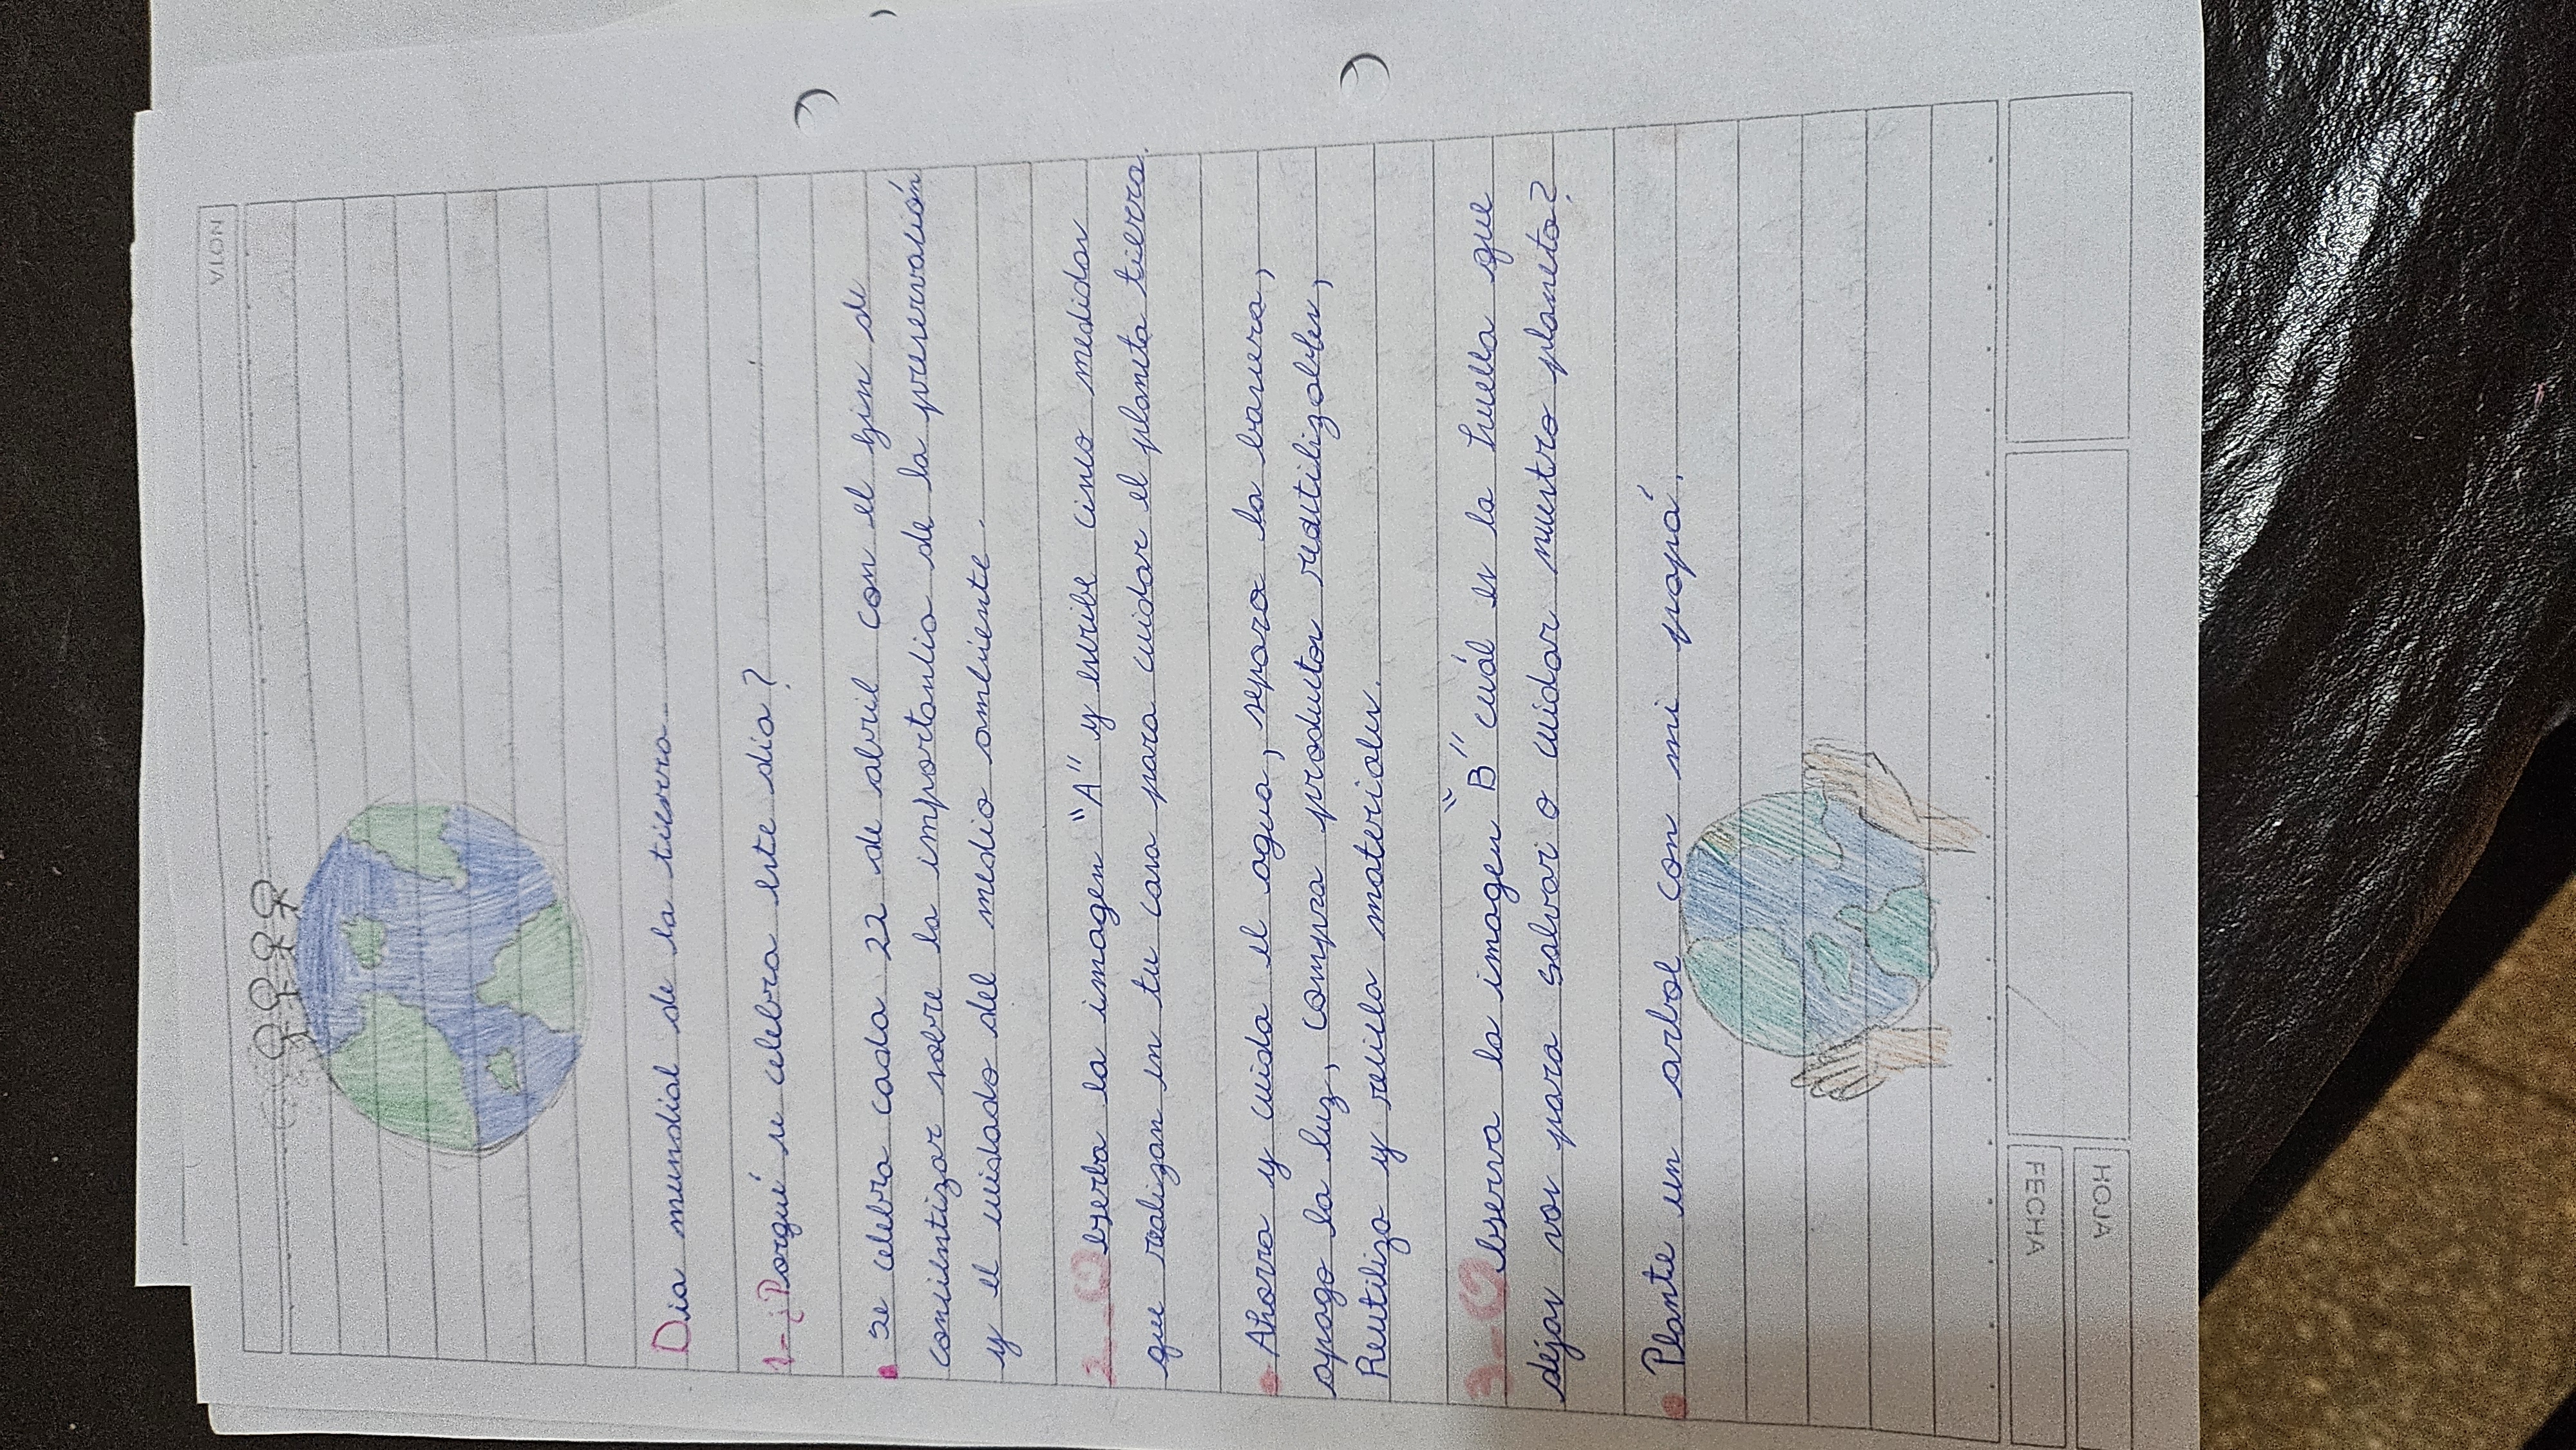 Dia mundial de la tierra
1-¿Porqué se celebra este día?
• se celebra cada 22 de abril con el fin de
concientizar sobre la importancia de la preservación
y el cuidado del medio ambiente.
2_ Observa la imagen "A" y escribe cinco medidas
que realizan en tu casa para cuidar el planeta tierra.
• Ahorra y cuida el agua, separa la basura,
apago la luz, compra productos reutilizables,
Reutiliza y recicla materiales.
3_ Observa la imagen "B" cuál es la huella que
dejas vos para salvar o cuidar nuestro planeta?
• Plante un arbol con mi papá.
FECHA
HOJA
NOTA